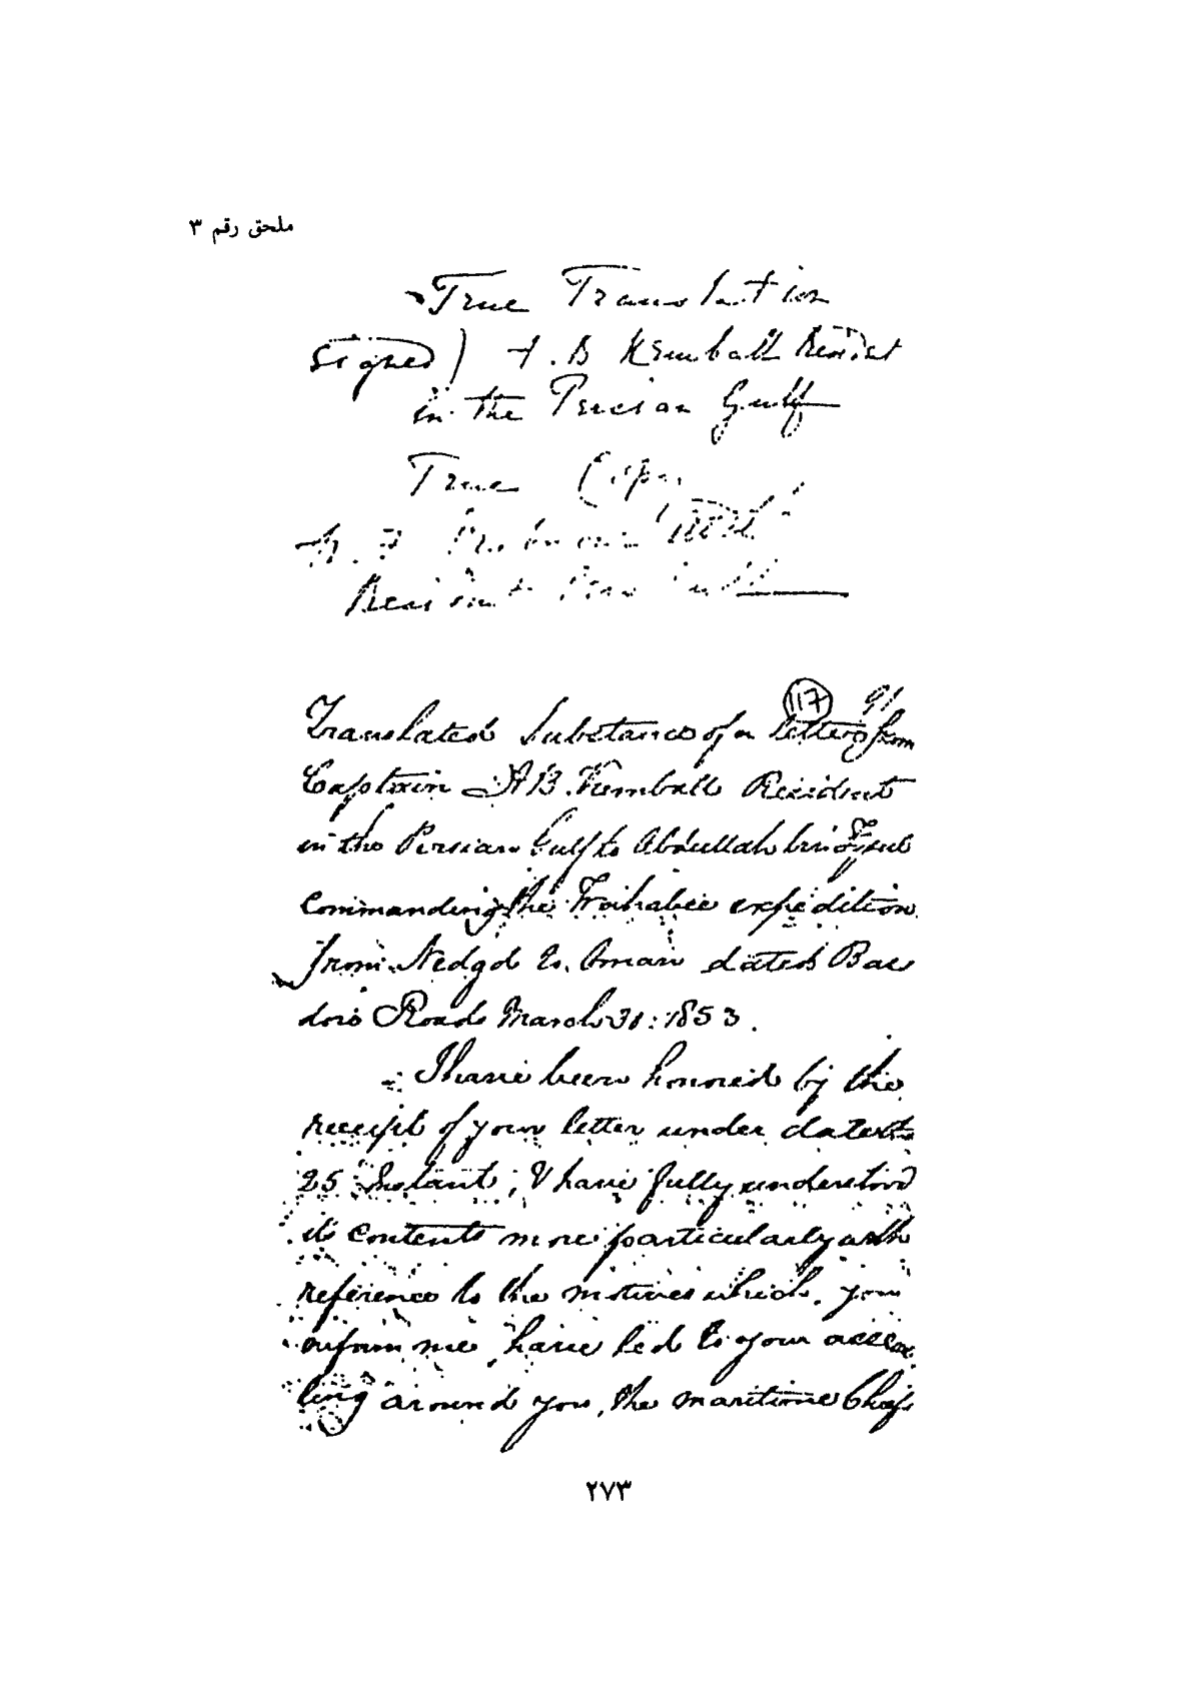 ملحق رقم ٣
True Translation
signed) A. B Kemball Resident
in the Persian Gulf
True Copy
Resident
117 91
Translated Substance of a letter from
Captain A B. Kemball Resident
in the Persian Gulf to Abdullah bin Fysul
Commanding the Wahabee expedition
from Nedgd to Oman dated Bas
dore Roads March 31: 1853.
I have been honored by the
receipt of your letter under date the
25 Instant; I have fully understood
its contents more particularly with
reference to the motives which you
inform me have led to your assem
bling around you, the maritime Chiefs
٢٧٣